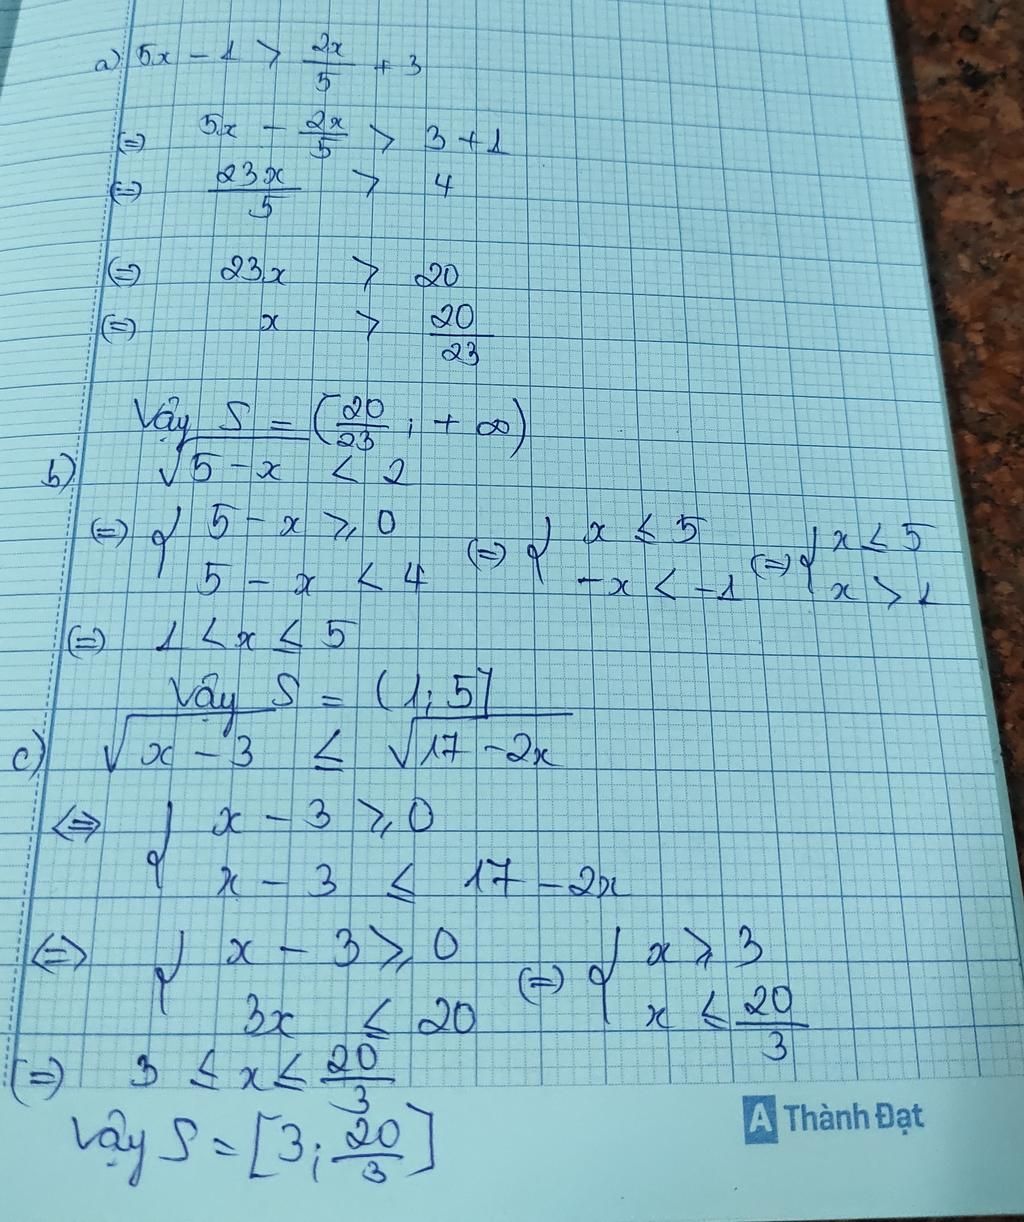 a) 5x - 1 > 2x/5 + 3
(=) 5x - 2x/5 > 3 + 1
(=) 23x/5 > 4
(=) 23x > 20
(=) x > 20/23
Vậy S = (20/23; +∞)
b) √(5 - x) < 2
(=) { 5 - x ≥ 0 (=) { x ≤ 5 (=) { x ≤ 5
5 - x < 4 -x < -1 x > 1
(=) 1 < x ≤ 5
Vậy S = (1; 5]
c) √(x - 3) ≤ √(17 - 2x)
<=> { x - 3 ≥ 0
x - 3 ≤ 17 - 2x
<=> { x - 3 ≥ 0 (=) { x ≥ 3
3x ≤ 20 x ≤ 20/3
(=) 3 ≤ x ≤ 20/3
Vậy S = [3; 20/3]
A Thành Đạt